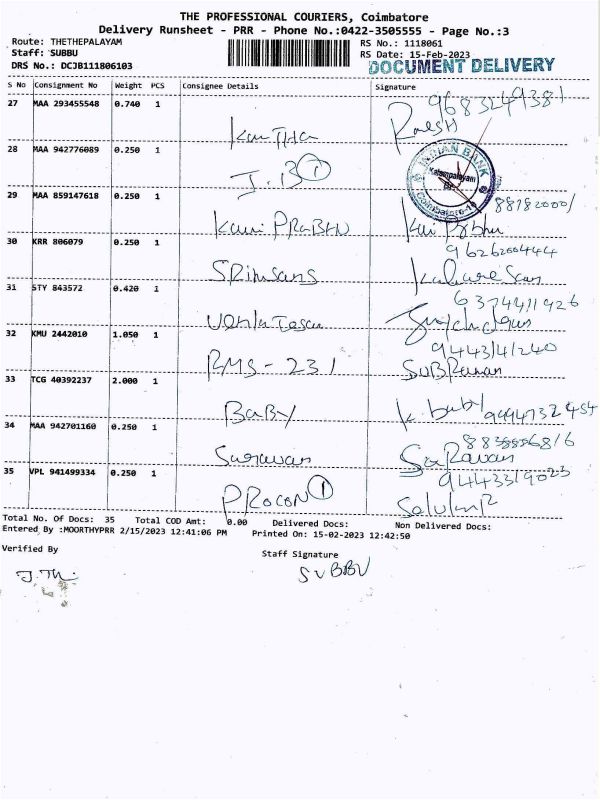 THE PROFESSIONAL COURIERS, Coimbatore
Delivery Runsheet - PRR - Phone No.:0422-3505555 - Page No.:3
Route: THETHEPALAYAM RS No.: 1118061
Staff: SUBBU RS Date: 15-Feb-2023
DRS No.: DCJB111806103 DOCUMENT DELIVERY
S No Consignment No Weight PCS Consignee Details Signature
27 MAA 293455548 0.740 1 9683249381
28 MAA 942776089 0.250 1
J.B 1 INDIAN BANK
29 MAA 859147618 0.250 1
Kavi PRABHU
30 KRR 806079 0.250 1
Srinsans
31 STY 843572 0.420 1
32 KMU 2442010 1.050 1
RMS - 231
33 TCG 40392237 2.000 1
BaBy K. baby
34 MAA 942701160 0.250 1
Saravan SaRavan
35 VPL 941499334 0.250 1
PROCON 1
Total No. Of Docs: 35 Total COD Amt: 0.00 Delivered Docs: Non Delivered Docs:
Entered By :MOORTHYPRR 2/15/2023 12:41:06 PM Printed On: 15-02-2023 12:42:50
Verified By Staff Signature
SUBBU